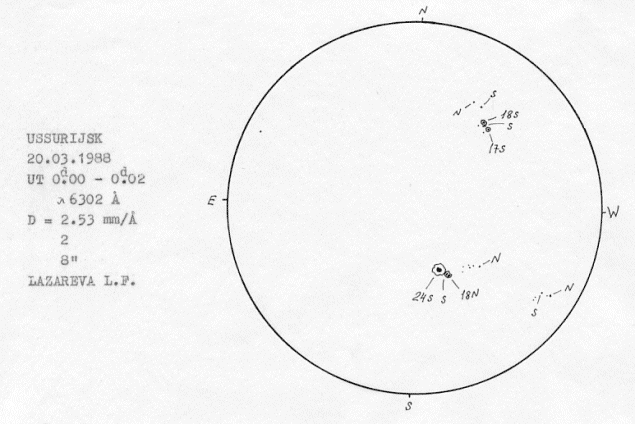 N
S
N
18S
S
17S
USSURIJSK
20.03.1988
UT 0.ᵈ00 - 0.ᵈ02
λ 6302 Å
D = 2.53 mm/Å
2
8"
LAZAREVA L.F.
E
W
N
24S S 18N
N
S
S